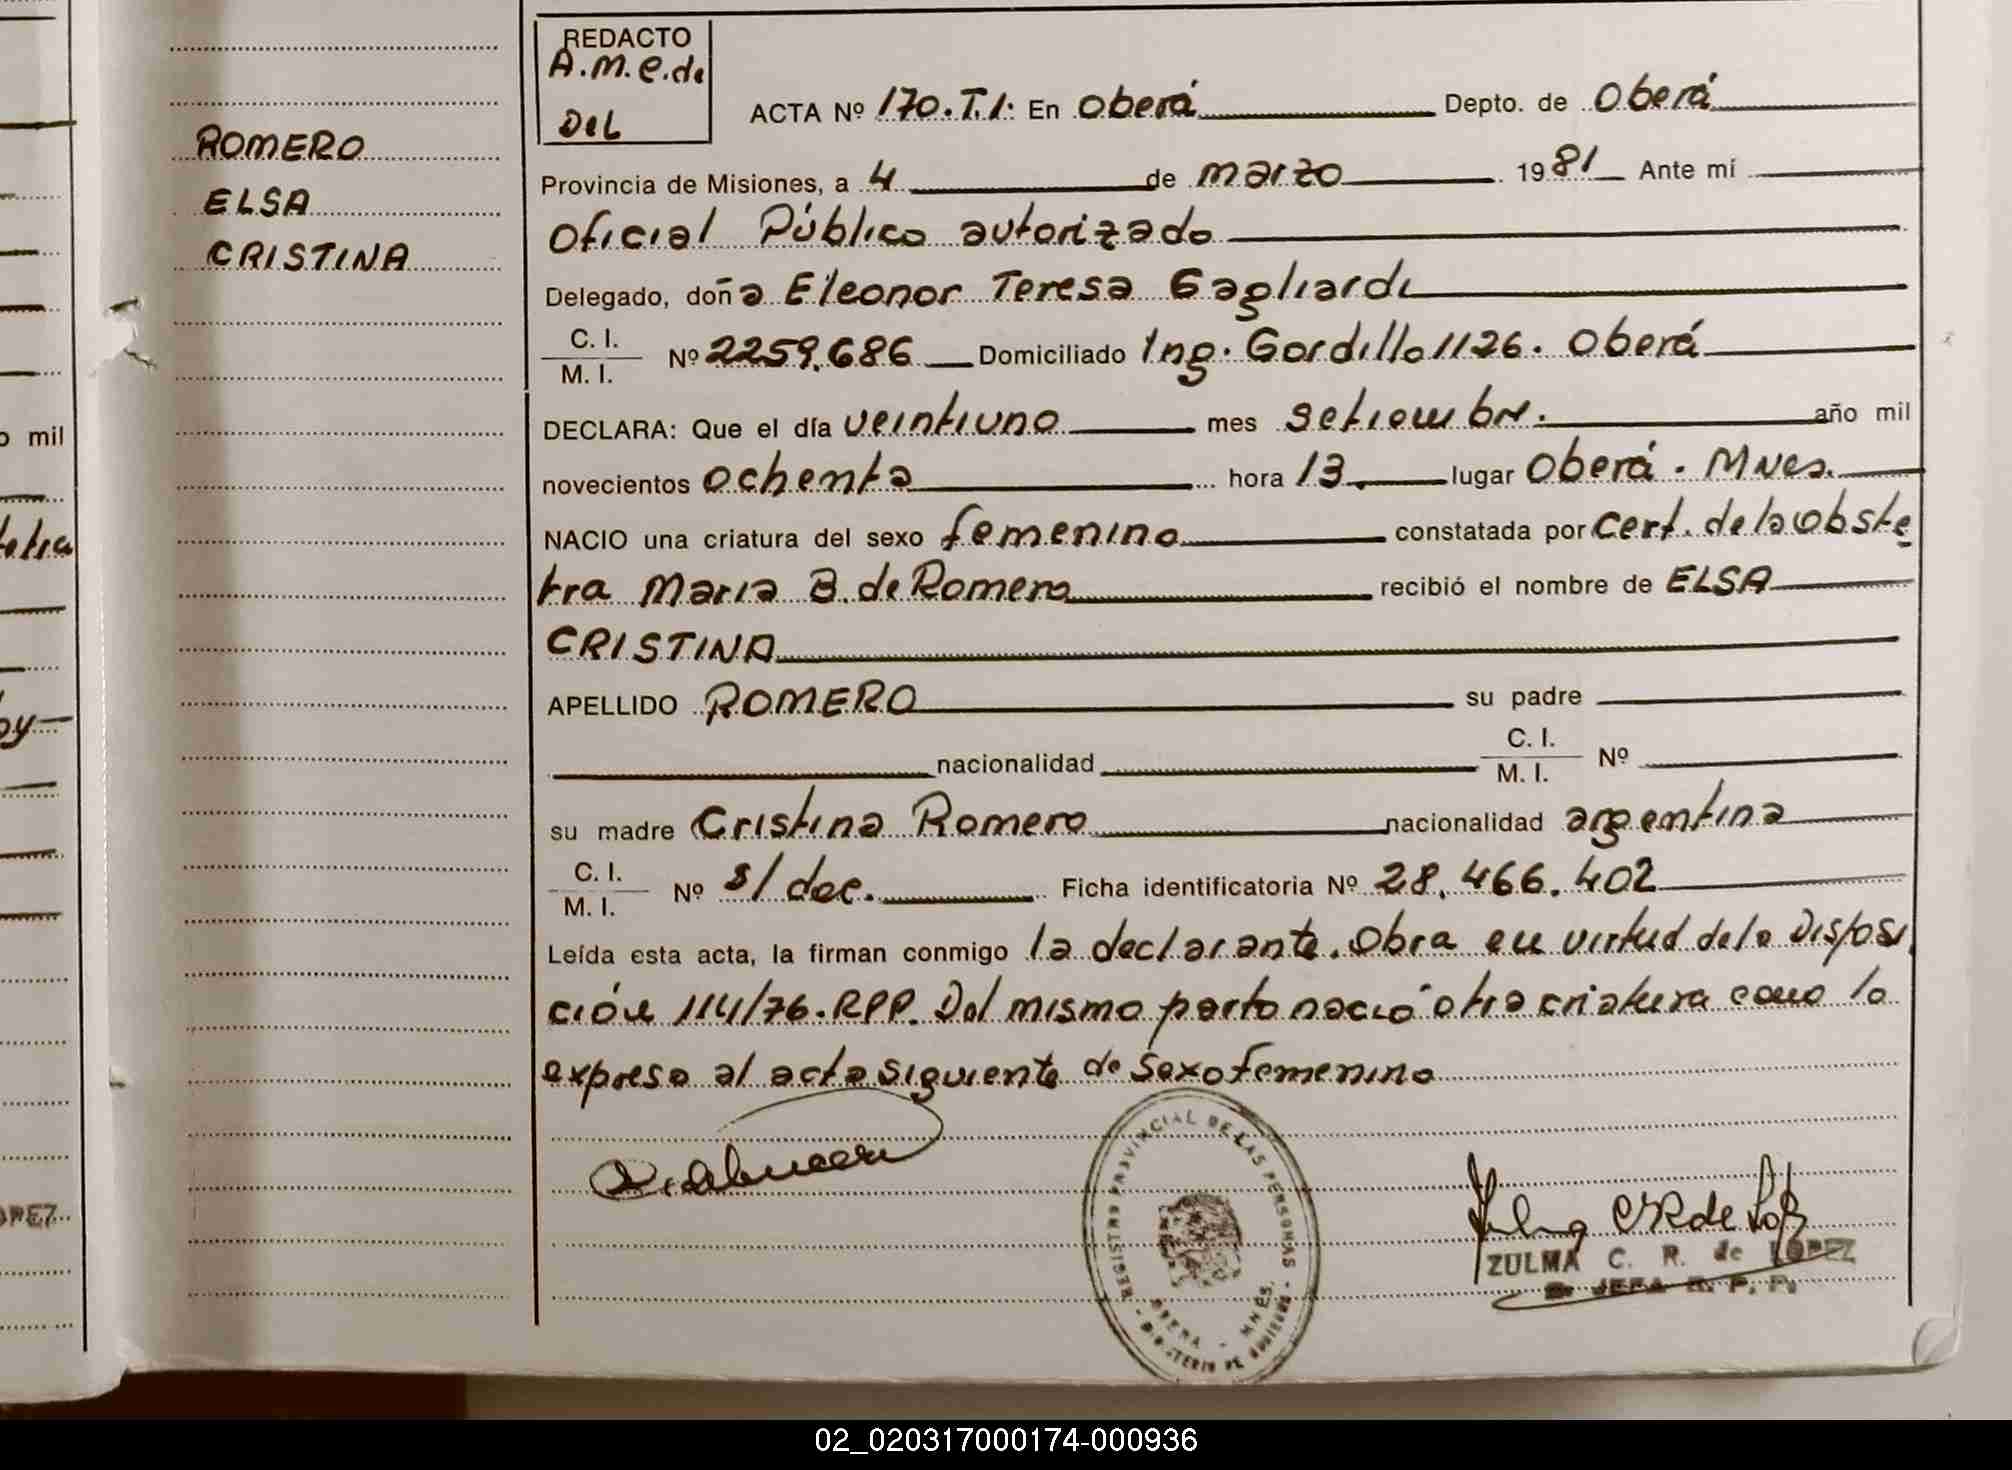 REDACTO
A.M.e.de
DEL
ROMERO
ELSA
CRISTINA
ACTA Nº 170.T.1: En Oberá Depto. de Oberá
Provincia de Misiones, a 4 de marzo 1981 Ante mí
Oficial Público autorizado
Delegado, doña Eleonor Teresa Gagliardi
C. I.
M. I. Nº 2259.686 Domiciliado Ing. Gordillo 1126. Oberá
DECLARA: Que el día veintiuno mes setiembre. año mil
novecientos ochenta hora 13. lugar Oberá. Mnes.
NACIO una criatura del sexo femenino constatada por Cert. de la obste
tra Maria B. de Romero recibió el nombre de ELSA
CRISTINA
APELLIDO ROMERO su padre
nacionalidad C. I.
M. I. Nº
su madre Cristina Romero nacionalidad argentina
C. I.
M. I. Nº s/doc. Ficha identificatoria Nº 28.466.402
Leída esta acta, la firman conmigo la declarante. Obra en virtud de la Disposi
ción 114/76.RPP. Del mismo parto nació otra criatura como lo
expresa al acta siguiente de sexo femenino
REGISTRO PROVINCIAL DE LAS PERSONAS
OBERA - MNES.
ZULMA C. R. de LOPEZ
JEFA R. P. P.
o mil
OPEZ
02_020317000174-000936